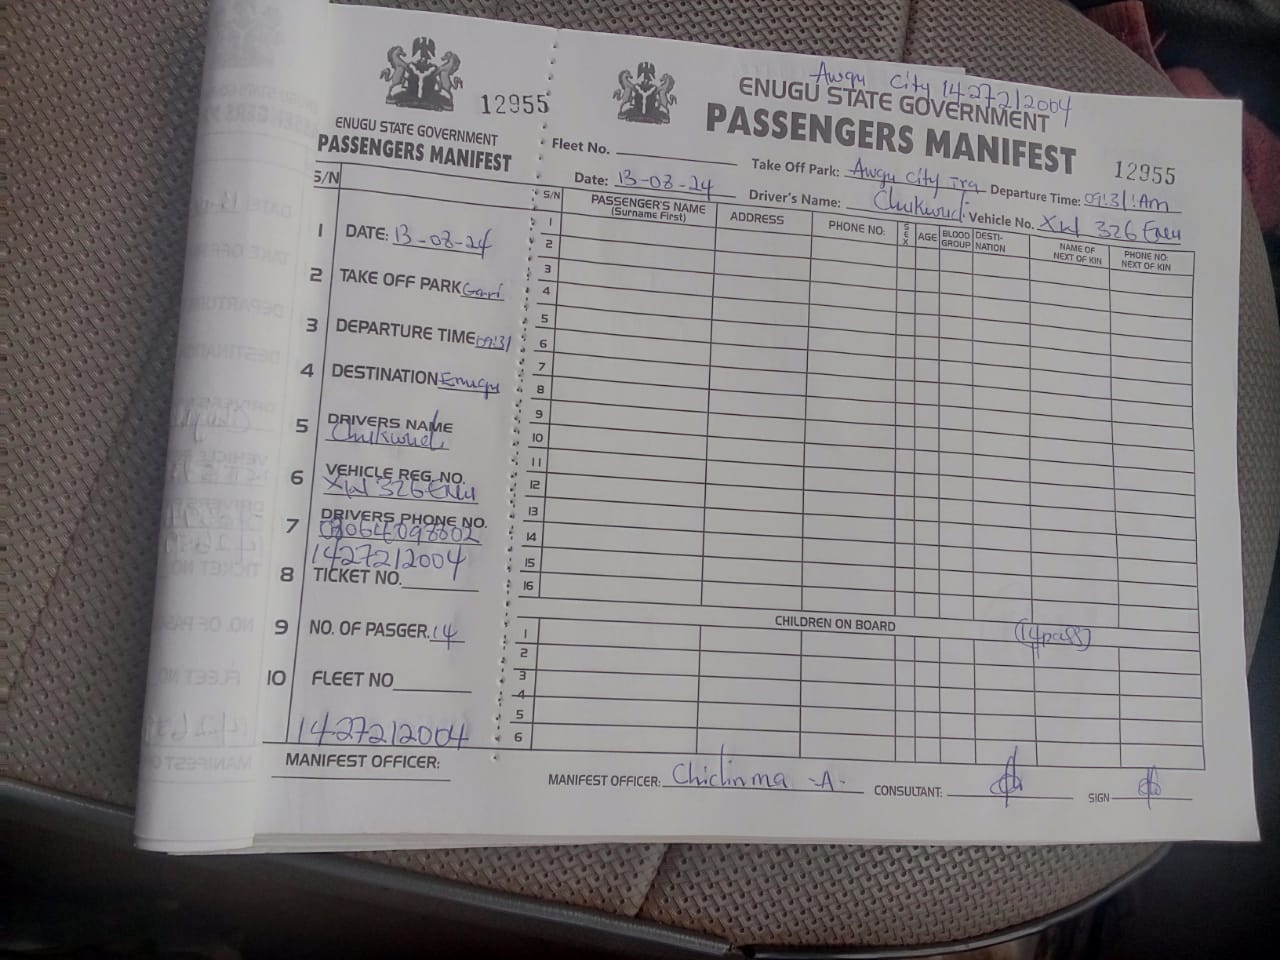 12955
ENUGU STATE GOVERNMENT
PASSENGERS MANIFEST
S/N
1 DATE: 13-08-24
2 TAKE OFF PARK Gari
3 DEPARTURE TIME 09:31
4 DESTINATION Enugu
5 DRIVERS NAME
Chukwudi
6 VEHICLE REG. NO.
XW 326 Enu
7 DRIVERS PHONE NO.
1427212004
8 TICKET NO.
9 NO. OF PASGER. 14
10 FLEET NO
1427212004
MANIFEST OFFICER:
Awgu City 1427212004
ENUGU STATE GOVERNMENT
PASSENGERS MANIFEST
12955
Fleet No. Take Off Park: Awgu City Departure Time: 09:31 Am
Date: 13-08-24 Driver's Name: Chukwudi Vehicle No. XW 326 Enu
S/N PASSENGER'S NAME (Surname First) ADDRESS PHONE NO: SEX AGE BLOOD GROUP DESTI-NATION NAME OF NEXT OF KIN PHONE NO: NEXT OF KIN
1
2
3
4
5
6
7
8
9
10
11
12
13
14
15
16
CHILDREN ON BOARD
(14pass)
1
2
3
4
5
6
MANIFEST OFFICER: Chidinma -A- CONSULTANT: SIGN